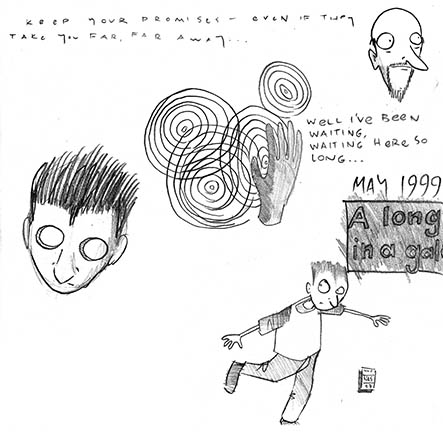 KEEP YOUR PROMISES - EVEN IF THEY
TAKE YOU FAR, FAR AWAY...
WELL I'VE BEEN
WAITING,
WAITING HERE SO
LONG...
MAY 1999
A long
in a gala